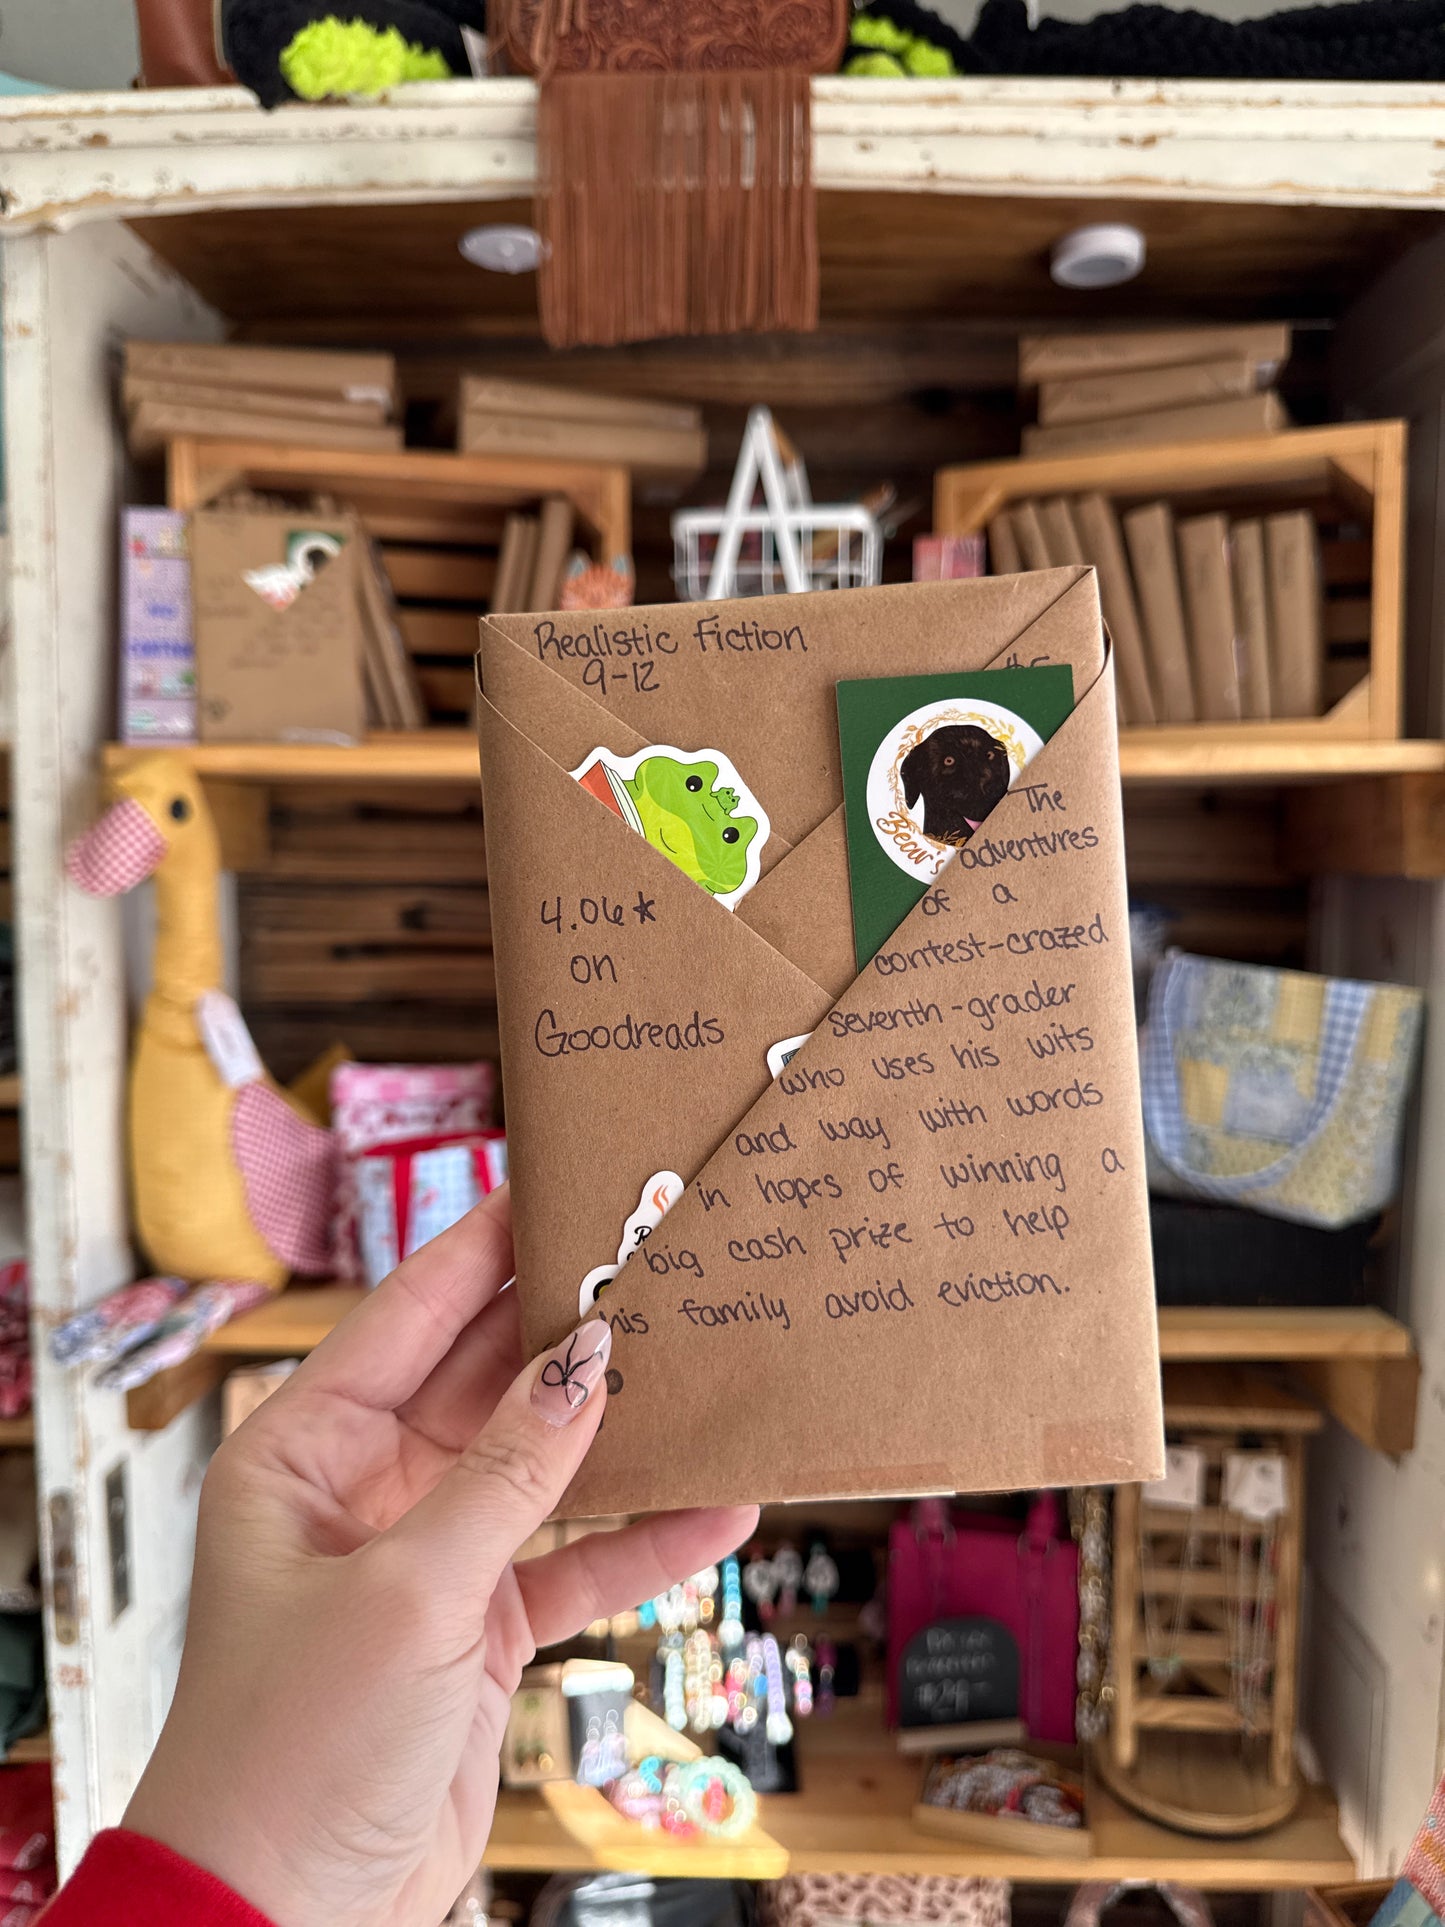 Realistic Fiction
9-12
$5
Bear's
4.06★
on
Goodreads
The
adventures
of a
contest-crazed
seventh-grader
who uses his wits
and way with words
in hopes of winning a
big cash prize to help
his family avoid eviction.